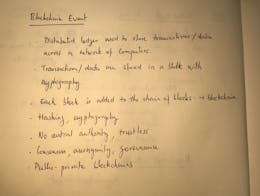 Blockchain Event
- Distributed ledger used to store transactions/data
across a network of computers.
- Transactions/data are stored in a block with
cryptography
- Each block is added to the chain of blocks → blockchain
- Hashing, cryptography
- No central authority, trustless
- Consensus, anonymity, governance
- Public-private blockchains